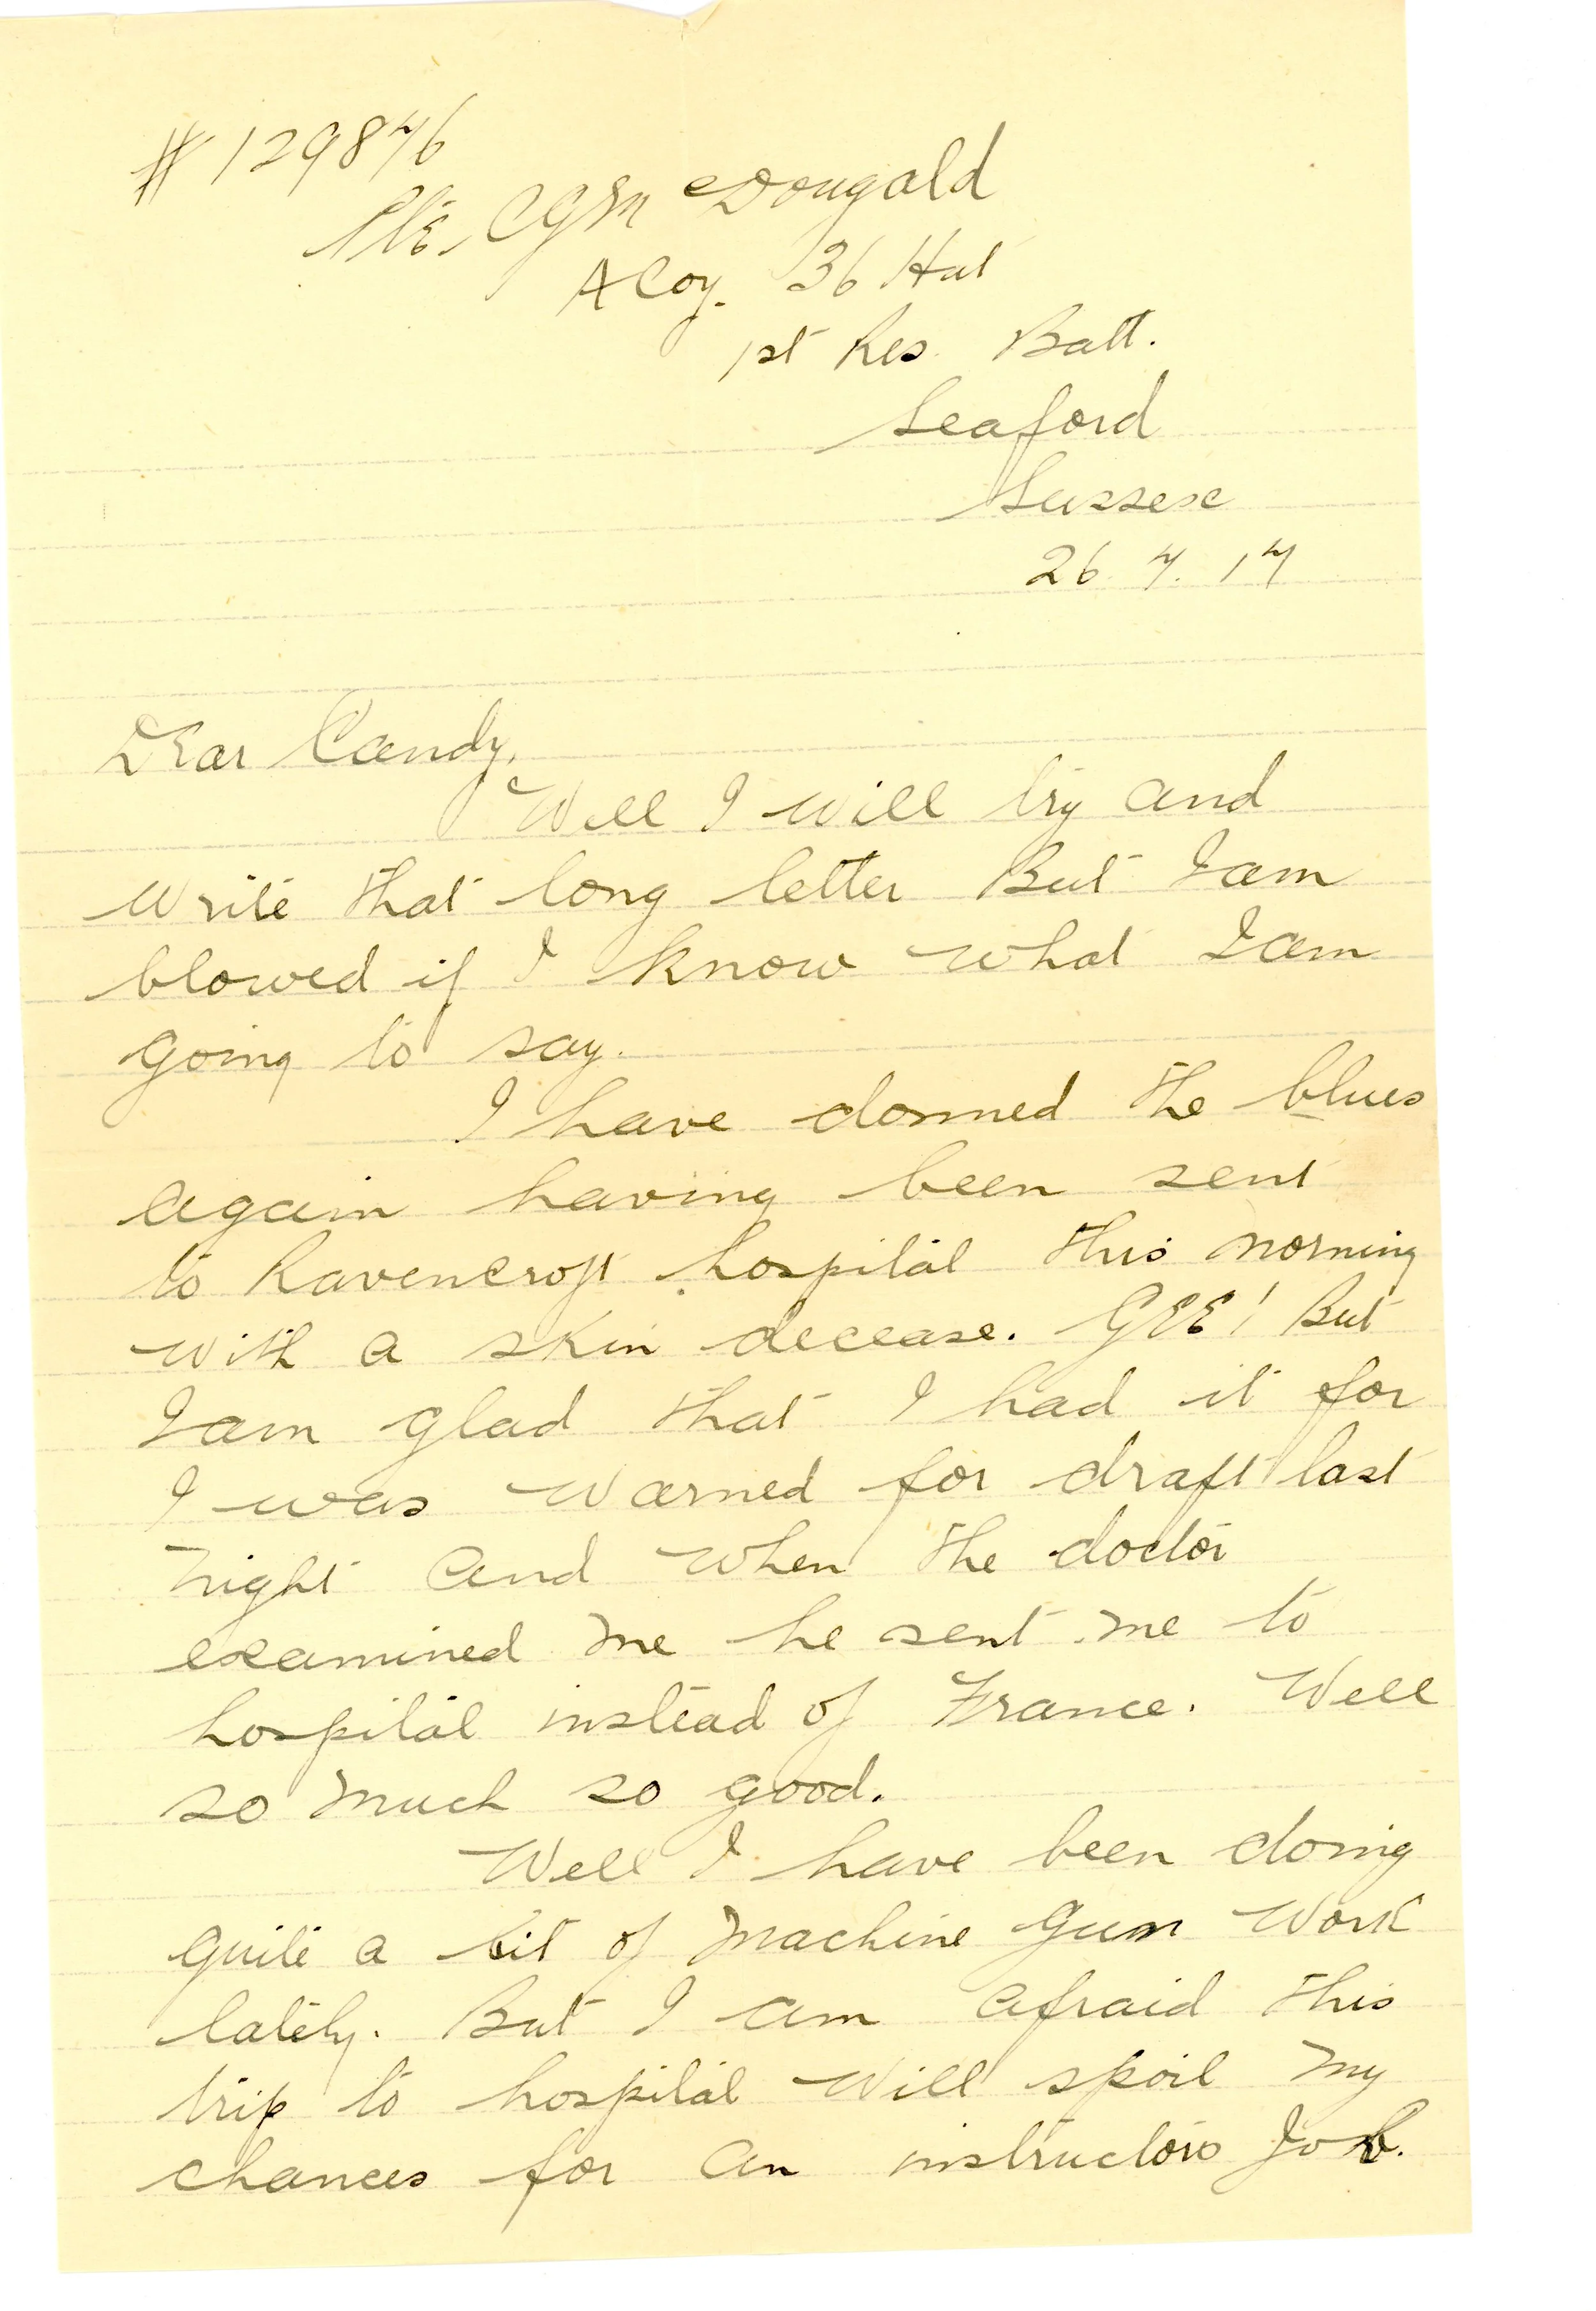 # 129876
Pte. CGM McDougald
A Coy. 36 Hut
1st Res. Batt.
Seaford
Sussex
26. 7. 17
Dear Candy,
Well I will try and
write that long letter But I am
blowed if I know what I am
going to say.
I have donned the blues
again having been sent
to Ravencroft hospital this morning
with a skin decease. GEE! But
I am glad that I had it for
I was warned for draft last
night and when the doctor
examined me he sent me to
hospital instead of France. Well
so much so good.
Well I have been doing
quite a bit of machine gun work
lately. But I am afraid this
trip to hospital will spoil my
chances for an instructors Job.